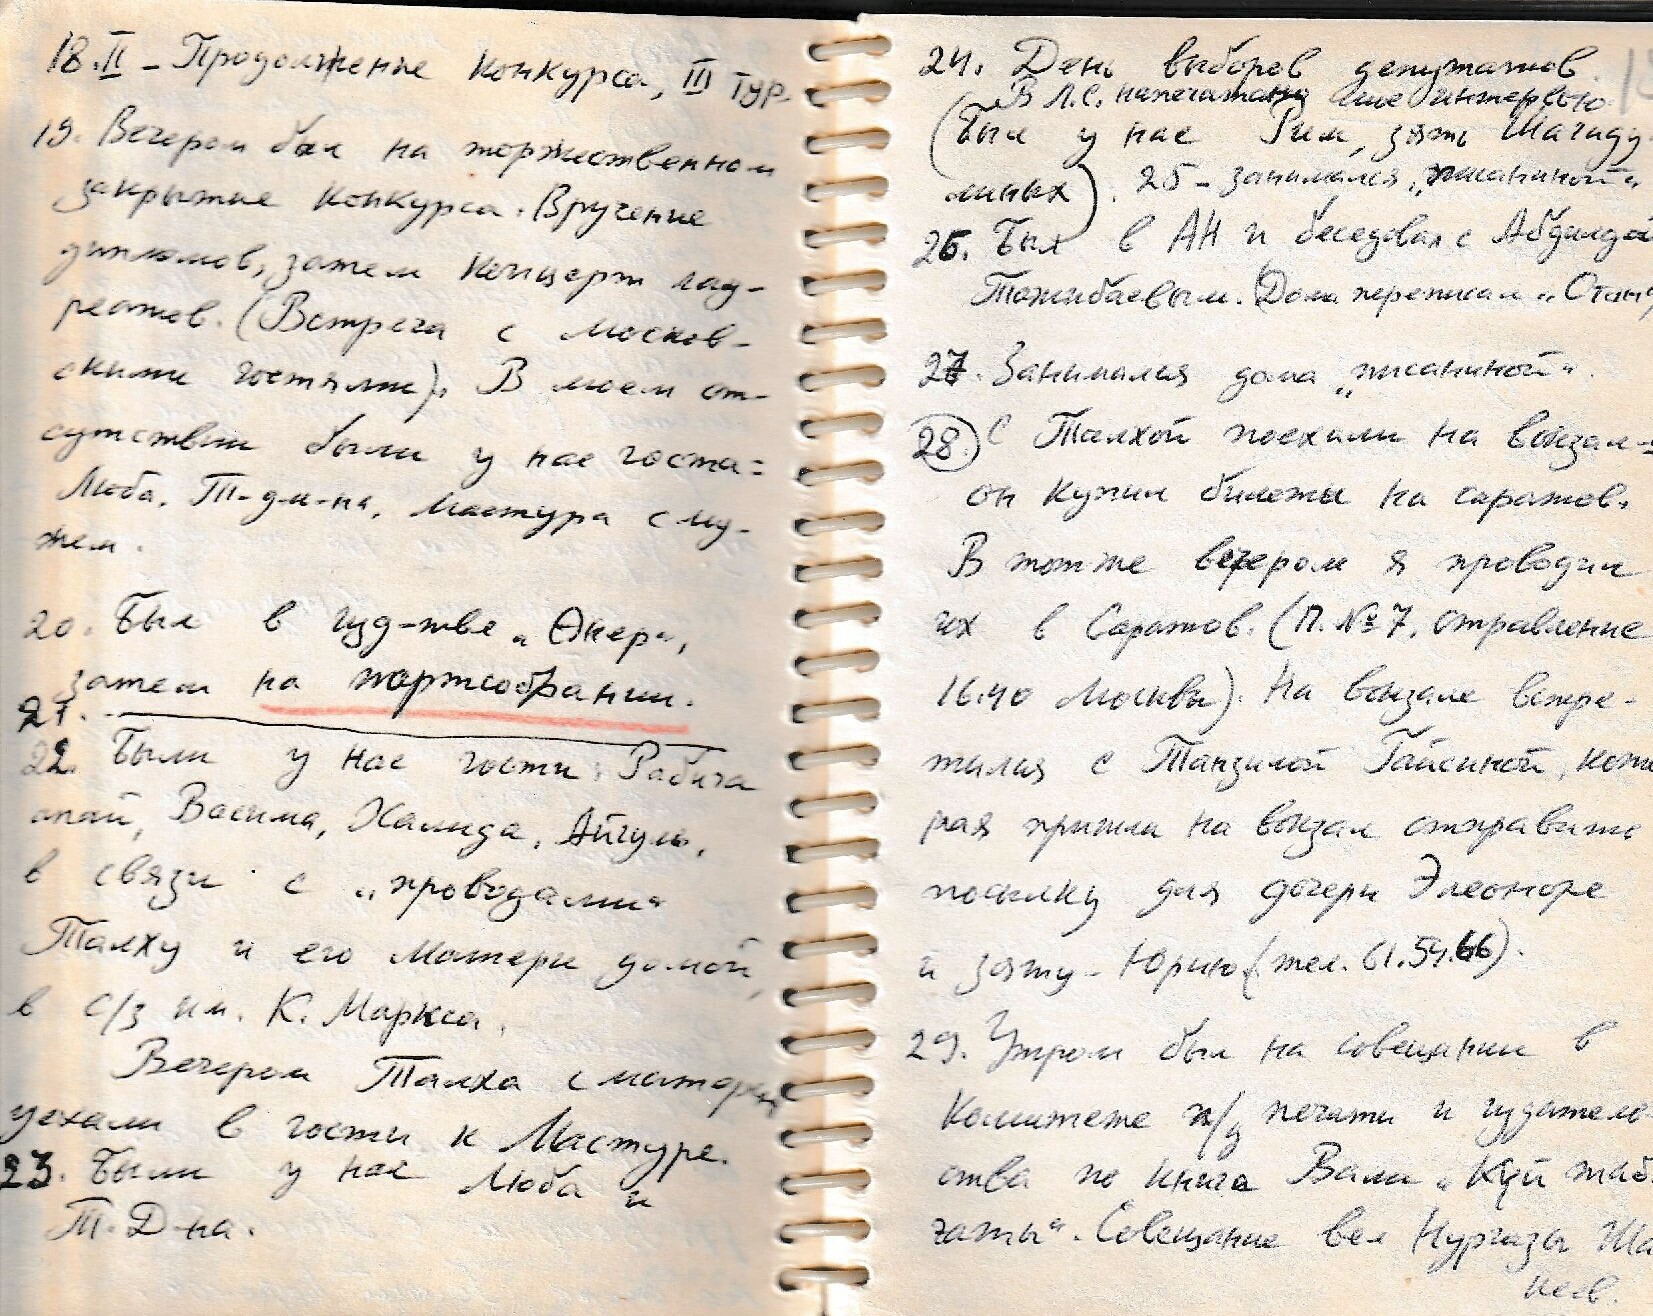 18.II – Продолжение конкурса, III тур.
19. Вечером был на торжественном
закрытие конкурса. Вручение
дипломов, затем концерт лау-
реатов. (Встреча с москов-
скими гостями). В моем от-
сутствии были у нас гости:
Люба, Т-ум-на, Мастура с му-
жем.
20. Был в изд-тве „Өнер",
затем на партсобрании.
21.
22. Были у нас гости: Рабига
апай, Васима, Халида, Айгуль,
в связи с „проводами"
Талху и его матери домой,
в с/з им. К. Маркса.
Вечером Талха с матерью
уехали в гости к Мастуре.
23. Были у нас Люба и
Т. Д-на.
24. День выборов депутатов.
В Л.С. напечатано мое интервью.
(Был у нас Рим, зять Шагиду-
линых). 25 – занимался „писаниной"
26. Был в АН и беседовал с Абдильдой
Тажибаевым. (Дома переписал „
27. Занимался дома „писаниной".
28) С Талхой поехали на вокзал –
он купил билеты на саратов.
В тотже вечером я проводил
их в Саратов. (П. №7, отправление
16.40 Москвы). На вокзале встре-
тился с Танзилой Гайсиной, кото
рая пришла на вокзал отправить
посылку для дочери Элеоноре
и зятю – Юрию (тел. 61.54.66).
29. Утром был на совещании в
Комитете п/д печати и издатель
ства по книга Вали „Куй
". Совещание вел Нургазы Ша